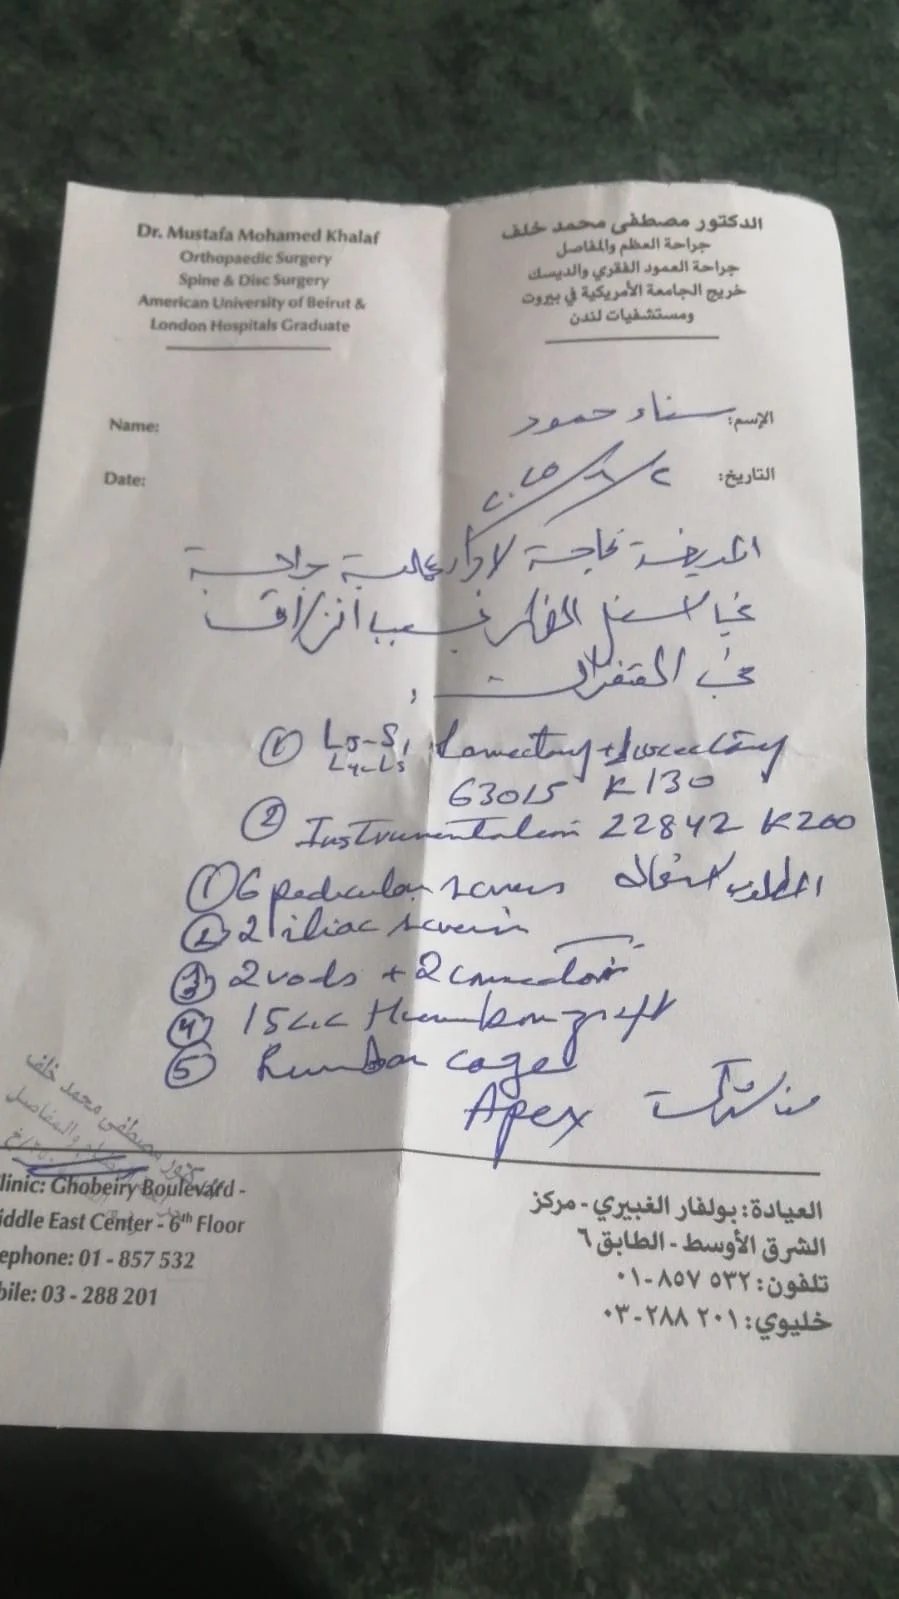 Dr. Mustafa Mohamed Khalaf
Orthopaedic Surgery
Spine & Disc Surgery
American University of Beirut &
London Hospitals Graduate
الدكتور مصطفى محمد خلف
جراحة العظم والمفاصل
جراحة العمود الفقري والديسك
خريج الجامعة الأمريكية في بيروت
ومستشفيات لندن
Name:
الإسم: سناء حمود
Date:
التاريخ:
المريضة بحاجة عملية جراحية
اسفل بسبب انزلاق
في الفقرات
① L5-S1
L4-L5
63015 K130
② Instrumentation 22842 K200
المطلوب
① 6 pedicular screws
② 2 iliac screws
③ 2 rods + 2
④ 15 c.c graft
⑤ Lumbar cage
Apex
مصطفى محمد خلف
linic: Ghobeiry Boulevard -
iddle East Center - 6th Floor
ephone: 01 - 857 532
bile: 03 - 288 201
العيادة: بولفار الغبيري - مركز
الشرق الأوسط - الطابق ٦
تلفون: ٥٣٢ ٨٥٧-٠١
خليوي: ٢٠١ ٢٨٨-٠٣